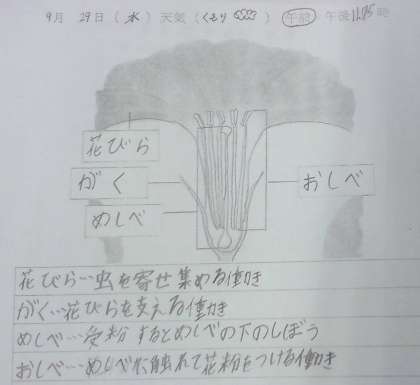 9月 29日(水) 天気(くもり) 午前 午後 時
花びら
がく
めしべ
おしべ
花びら…虫を寄せ集める働き
がく…花びらを支える働き
めしべ…受粉するとめしべの下のしぼう
おしべ…めしべに触れて花粉をつける働き